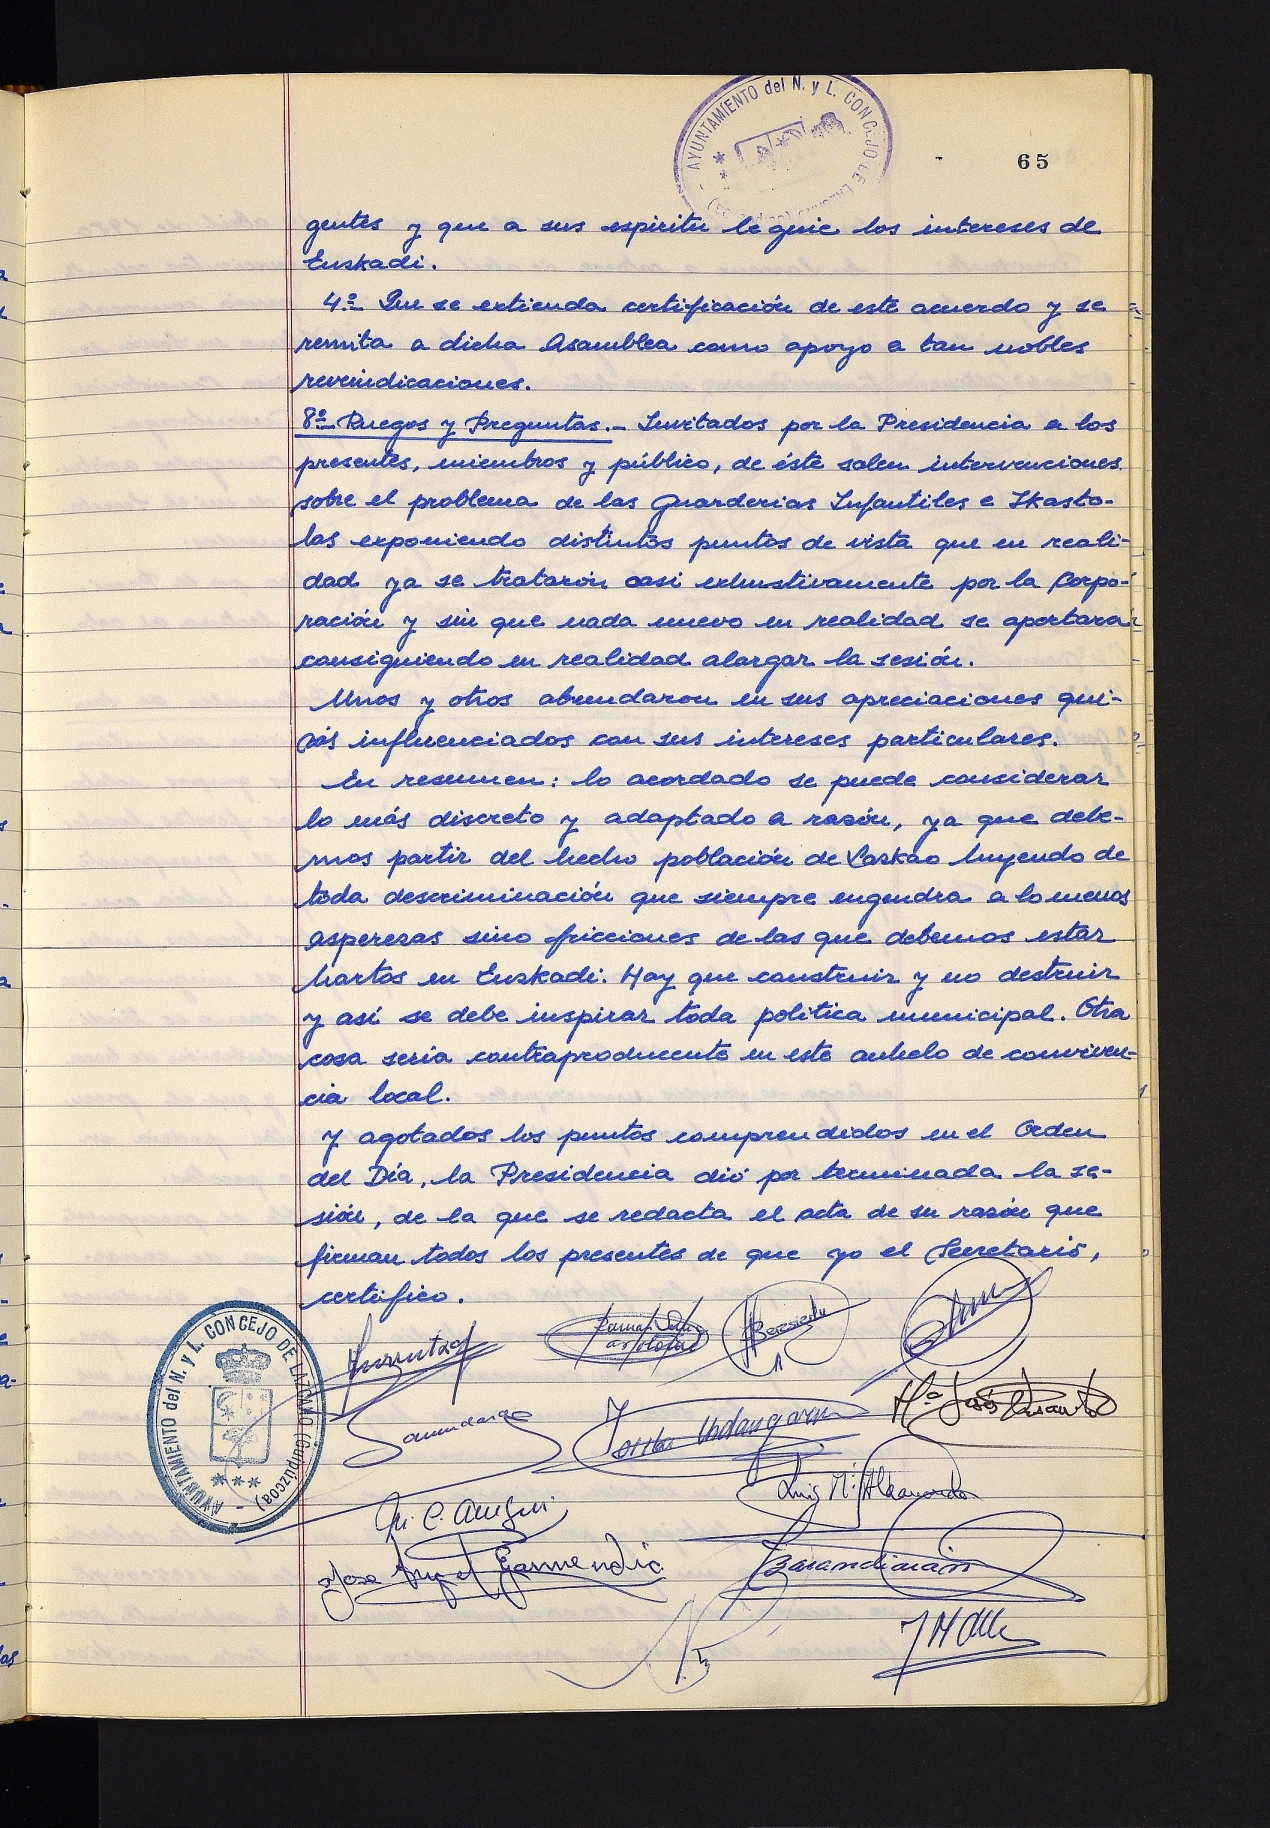 AYUNTAMIENTO del N. y L. CONCEJO DE
65
gentes y que a sus espiritu le guie los intereses de
Euskadi.
4.º Que se extienda certificación de este acuerdo y se
remita a dicha Asamblea como apoyo a tan nobles
reveindicaciones.
8º Ruegos y Preguntas.- Invitados por la Presidencia a los
presentes, miembros y público, de éste salen intervenciones
sobre el problema de las Guarderias Infantiles e Ikasto-
las exponiendo distintos puntos de vista que en reali-
dad ya se trataron casi exhustivamente por la Corpo-
ración y sin que nada nuevo en realidad se aportara
consiguiendo en realidad alargar la sesión.
Unos y otros abundaron en sus apreciaciones qui-
zás influenciados con sus intereses particulares.
En resumen: lo acordado se puede considerar
lo más discreto y adaptado a razón, ya que debe-
mos partir del hecho población de Lazkao huyendo de
toda descriminación que siempre engendra a lo menos
asperezas sino fricciones de las que debemos estar
hartos en Euzkadi. Hay que construir y no destruir
y así se debe inspirar toda politica municipal. Otra
cosa seria contraproducente en este anhelo de conviven-
cia local.
Y agotados los puntos comprendidos en el Orden
del Día, la Presidencia dió por terminada la se-
sión, de la que se redacta el acta de su razón que
firman todos los presentes de que yo el Secretario,
certifico.
AYUNTAMIENTO del N. y L. CONCEJO DE LAZCANO (Guipúzcoa)
Mª José
Luis Mª
Jose Miguel Garmendia
Barandiarán